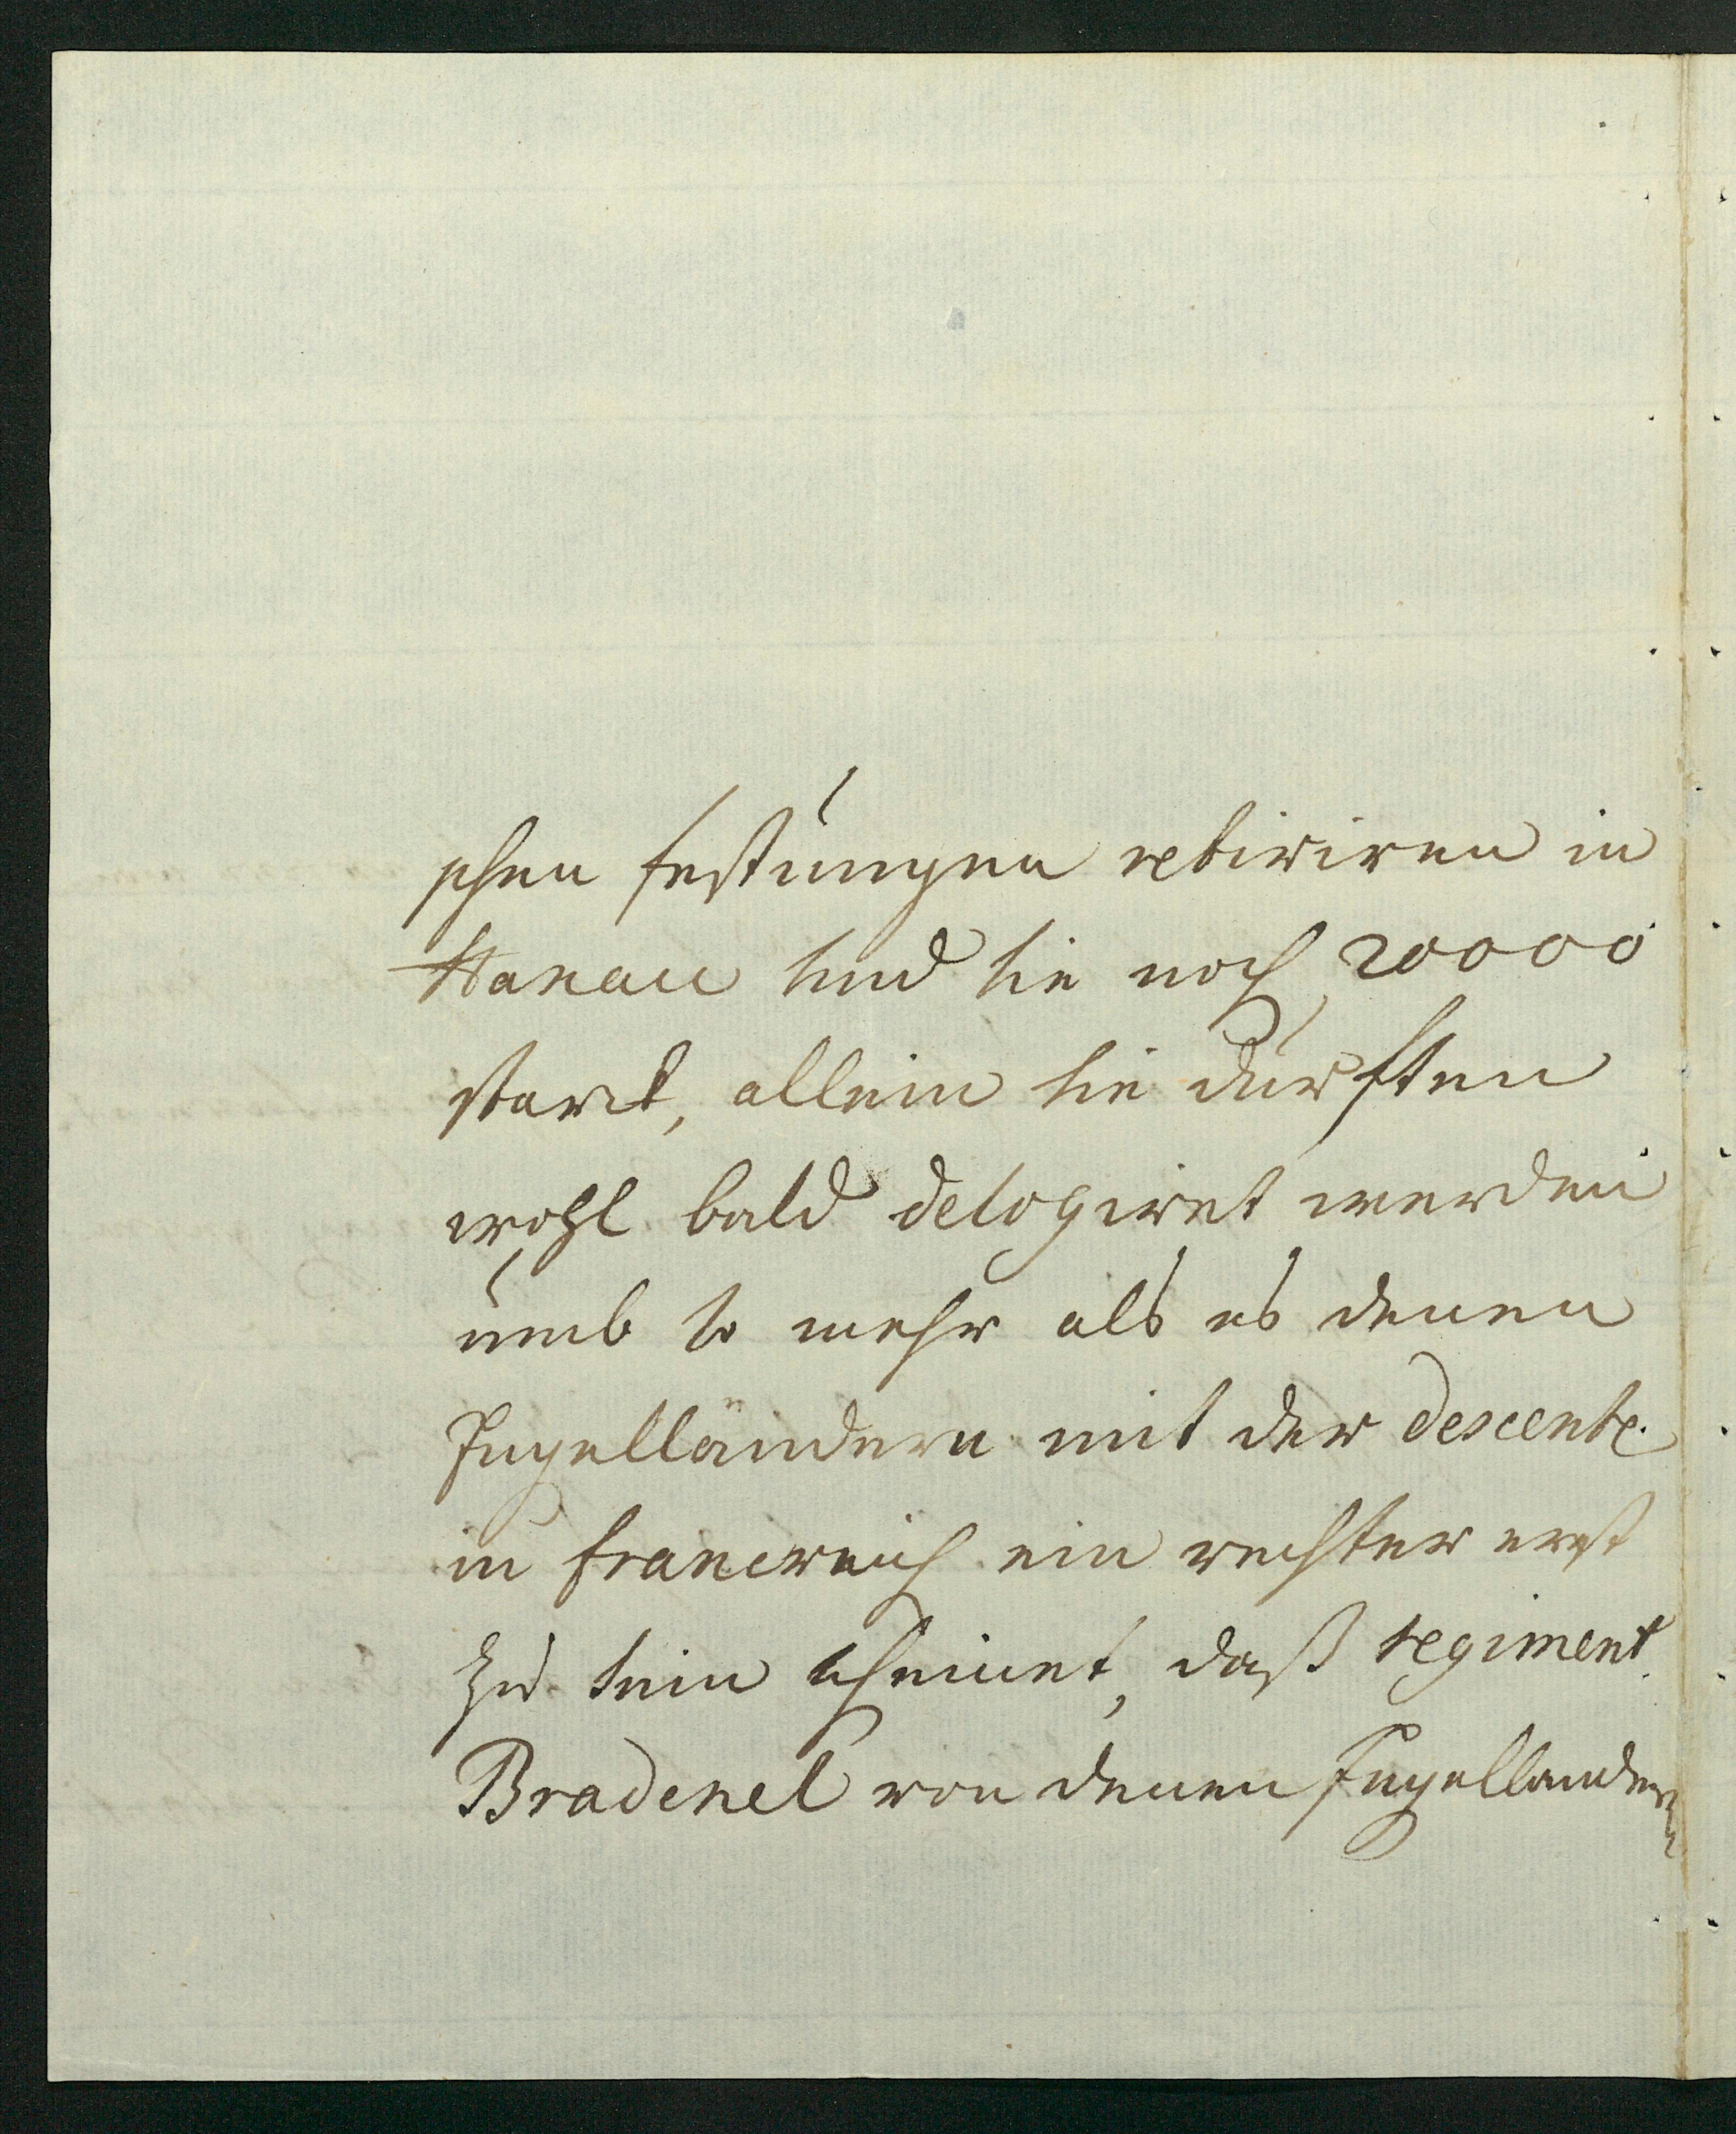 schen festungen retiriren in
Hanau sind sie noch 20000
starck, allein sie dürfften
wohl bald delogiret werden
umb so mehr als es denen
Engelländern mit der descente
in franckreich ein rechter erst
zu sein scheinet, daß regiment
Bradenel von denen Engelländern